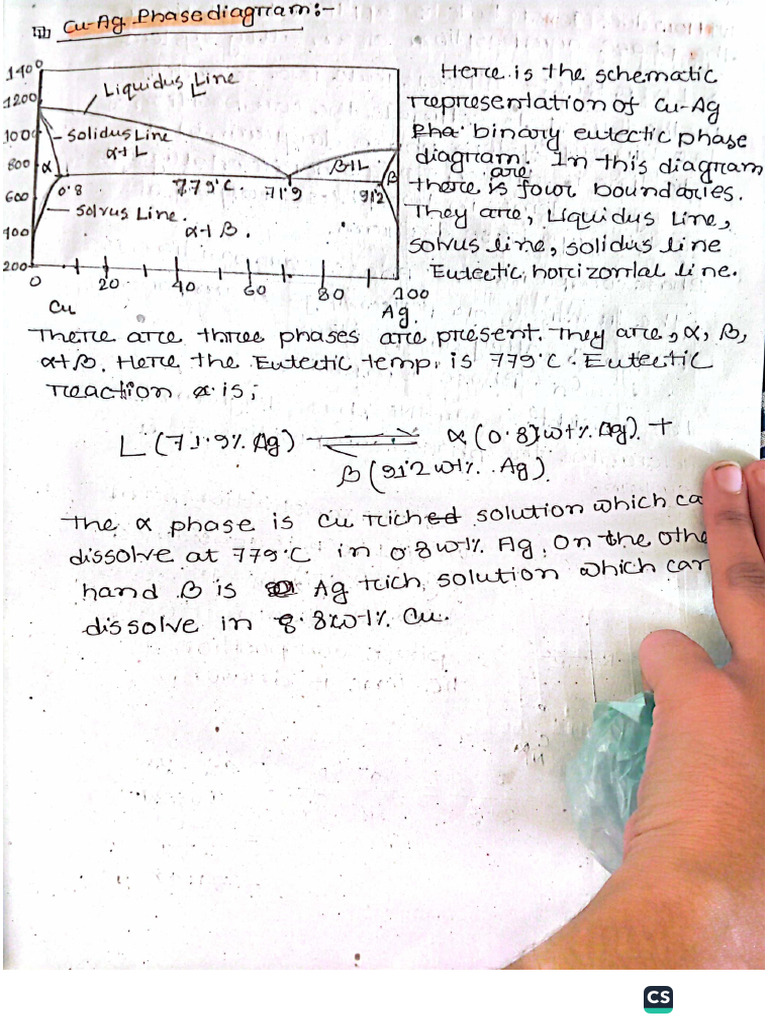 Cu-Ag Phase diagram:-
1400
1200
1000
800
600
400
200
Liquidus Line
L
Solidus Line
α+L
α
β+L
β
0.8
779°C.
71.9
912
Solvus Line.
α+β.
0 20 40 60 80 100
Cu
Ag.
Here is the schematic
representation of Cu-Ag
Pha binary eutectic phase
diagram. In this diagram
are
there is four boundaries.
They are, Liquidus Line,
solvus line, solidus line
Eutectic, horizontal line.
There are three phases are present. They are, α, β,
α+β. Here the Eutectic temp. is 779°C. Eutectic
reaction α is;
L (71.9% Ag) ⇌ α (0.8) wt% Ag). +
β (912 wt%. Ag).
The α phase is Cu riched solution which ca
dissolve at 779°C in 0.8 wt% Ag. On the othe
hand β is Ag rich solution which can
dissolve in 8.8 wt% Cu.
CS